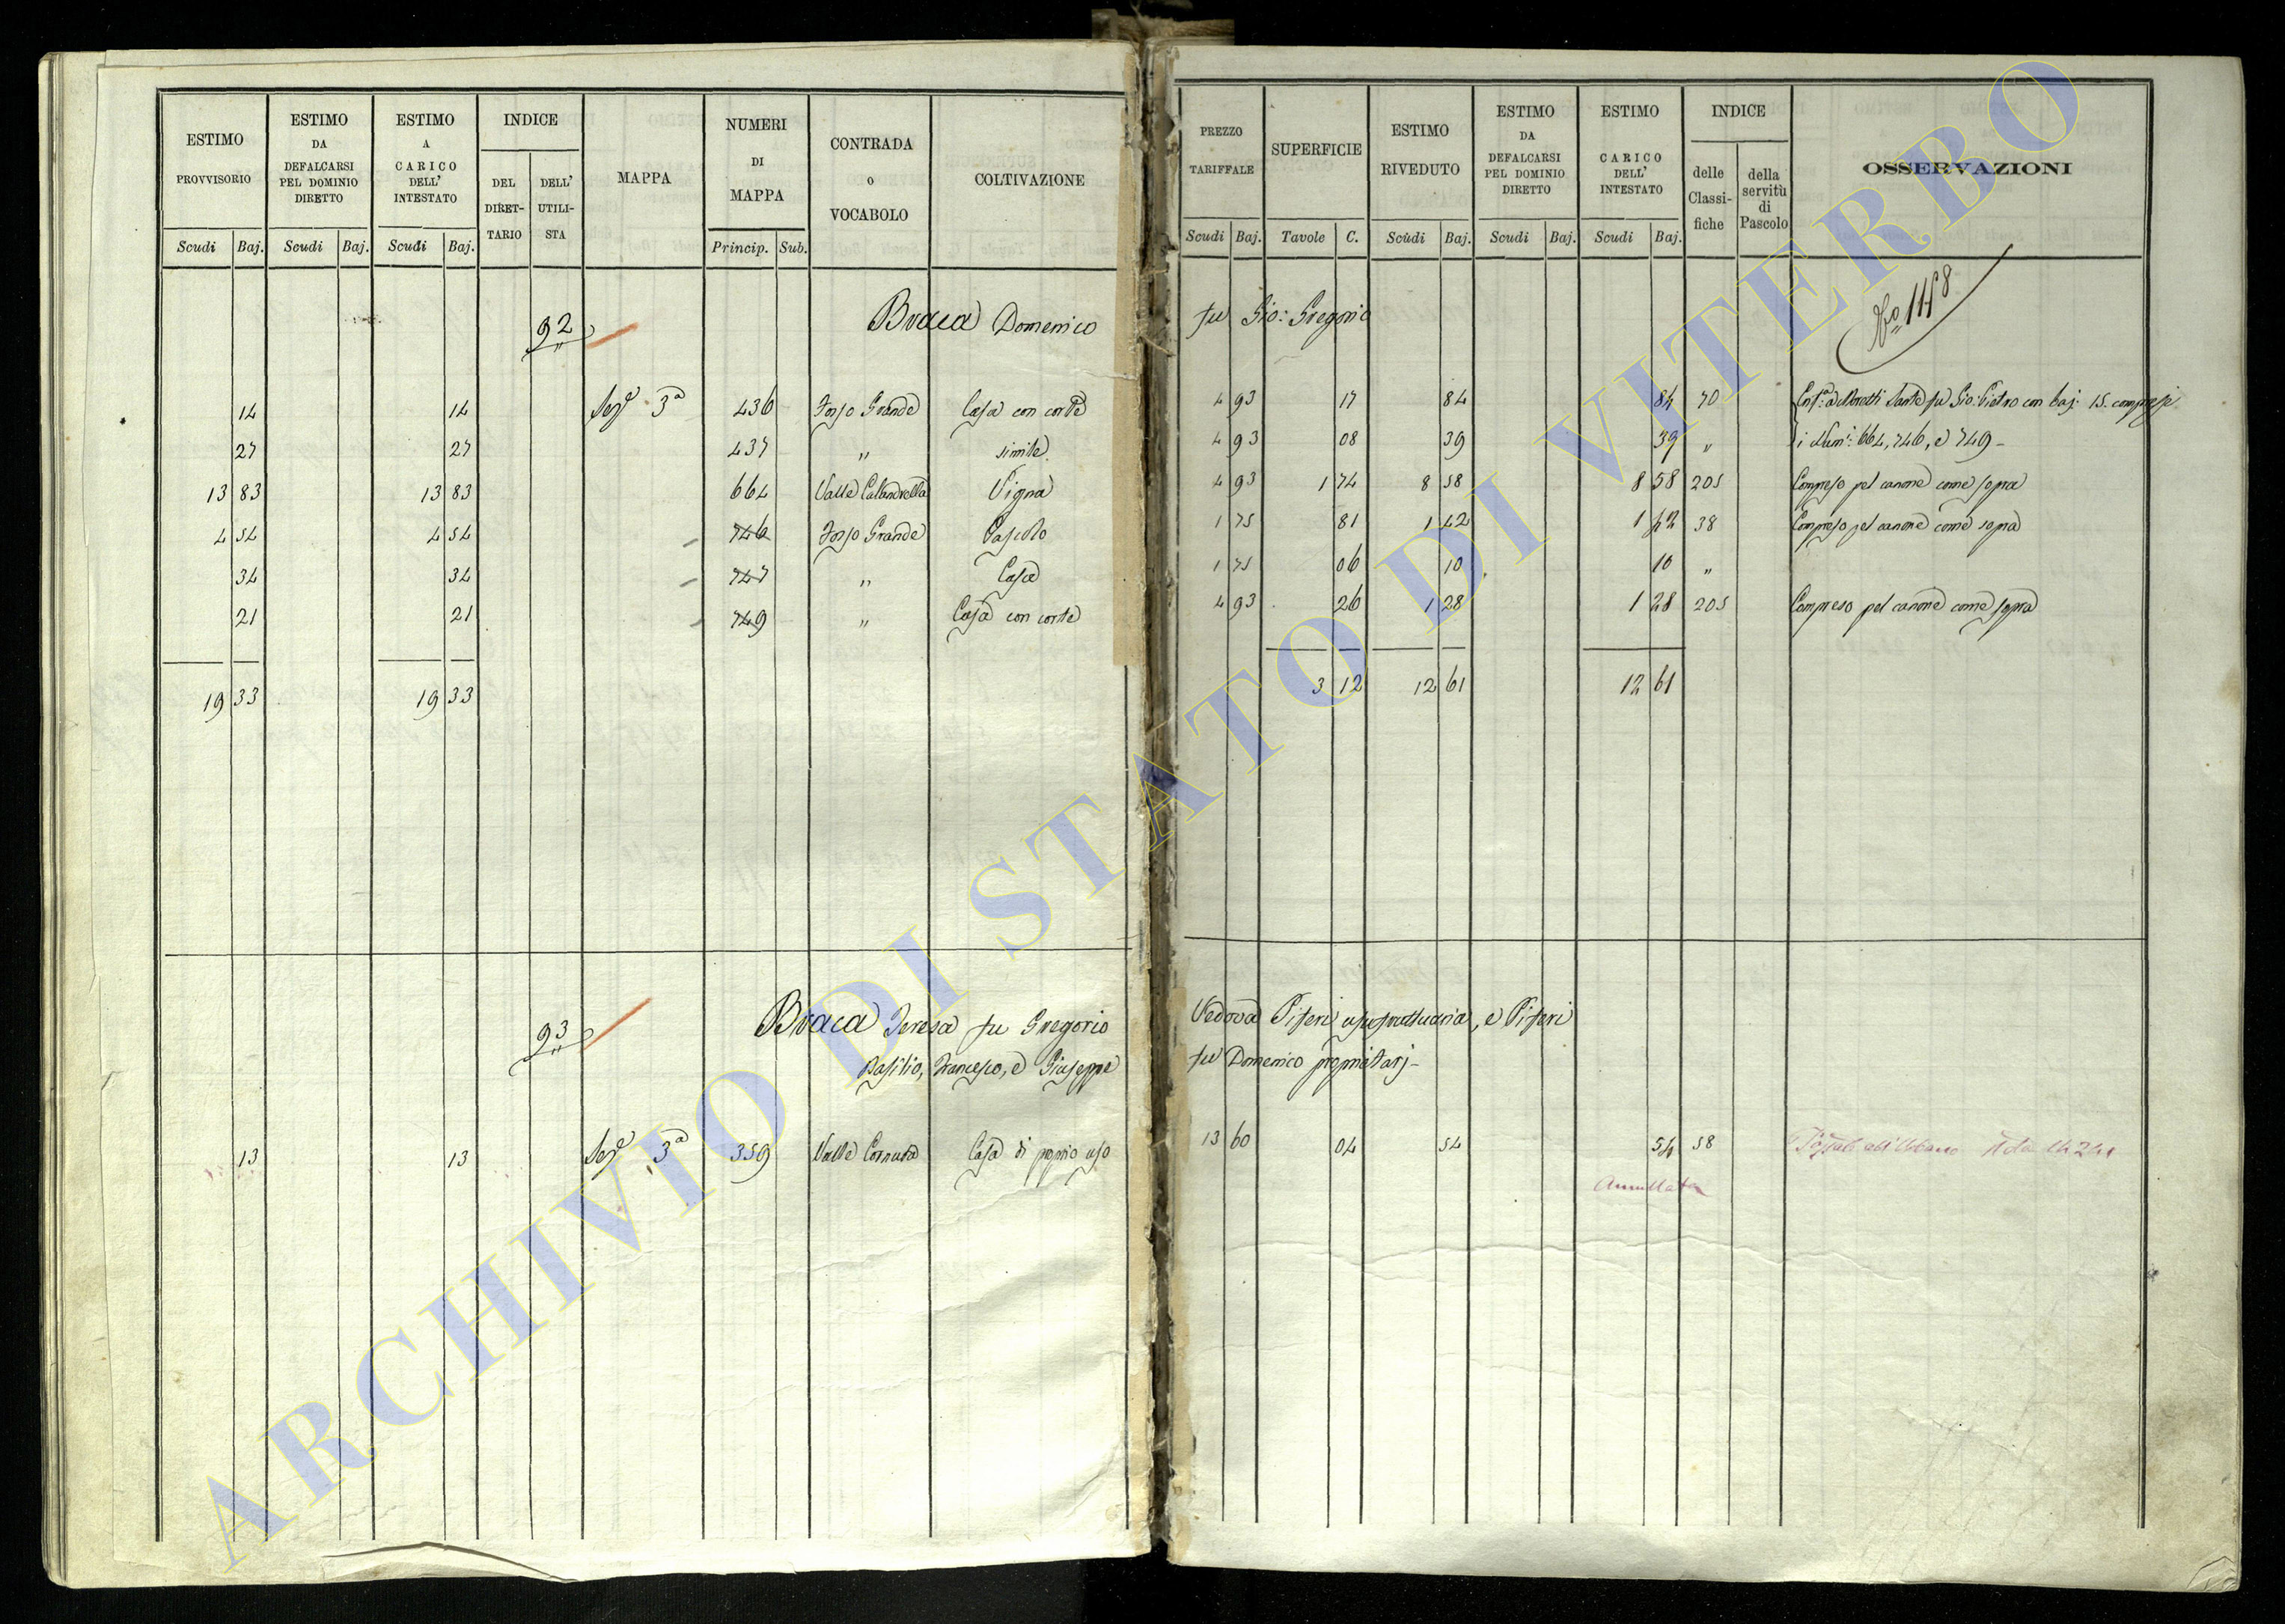 ESTIMO PROVVISORIO
ESTIMO DA DEFALCARSI PEL DOMINIO DIRETTO
ESTIMO A CARICO DELL' INTESTATO
INDICE
DEL DIRET-TARIO
DELL' UTILI-STA
MAPPA
NUMERI DI MAPPA
CONTRADA O VOCABOLO
COLTIVAZIONE
Scudi Baj. Scudi Baj. Scudi Baj. Princip. Sub.
92 Braca Domenico
14 14 Sez.e 3a 436 Fosso Grande Casa con corte
27 27 437 " simile
13 83 13 83 664 Valle Calandrella Vigna
4 54 4 54 746 Fosso Grande Pascolo
34 34 747 " Casa
21 21 749 " Casa con corte
19 33 19 33
93 Braca Teresa fu Gregorio
Basilio, Francesco, e Giuseppe
13 13 Sez.e 3a 359 Valle Cornuta Casa di proprio uso
PREZZO TARIFFALE
SUPERFICIE
ESTIMO RIVEDUTO
ESTIMO DA DEFALCARSI PEL DOMINIO DIRETTO
ESTIMO CARICO DELL' INTESTATO
INDICE
delle Classi-fiche
della servitù di Pascolo
OSSERVAZIONI
Scudi Baj. Tavole C. Scudi Baj. Scudi Baj. Scudi Baj.
fu Gio: Gregorio
4 93 17 84 84 70 Moretti Sante fu Gio: Pietro con baj: 15. compresi
4 93 08 39 39 " i Num: 664, 746, e 749 -
4 93 1 74 8 58 8 58 205 Compreso pel canone come sopra
1 75 81 1 42 1 42 38 Compreso pel canone come sopra
1 75 06 10 10 "
4 93 26 1 28 1 28 205 Compreso pel canone come sopra
3 12 12 61 12 61
Vedova Piferi usufruttuaria, e Piferi
fu Domenico proprietarj -
13 60 04 54 54 58
Annullata
ARCHIVIO DI STATO DI VITERBO